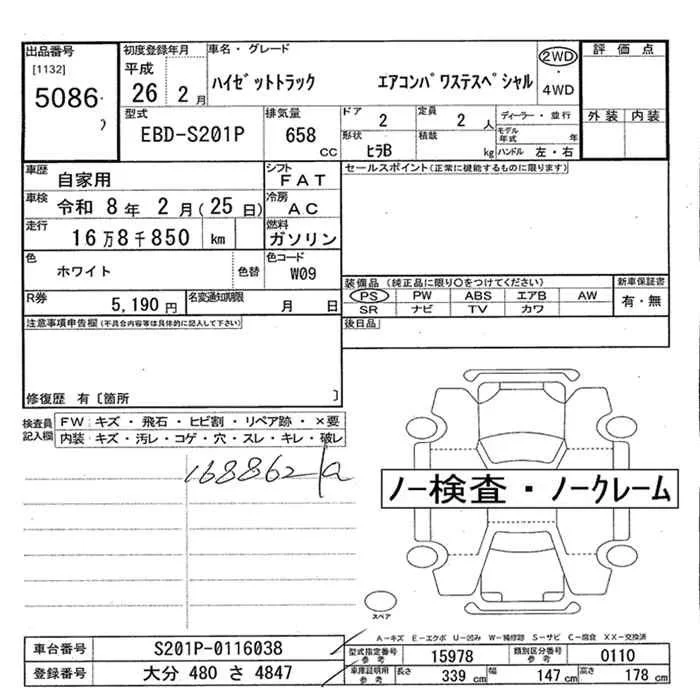 出品番号
[1132]
5086
初度登録年月
平成
26年 2月
車名・グレード
ハイゼットトラック エアコンパワステスペシャル
2WD
・
4WD
評価点
外装 内装
型式
EBD-S201P
排気量
658
CC
ドア
2
定員
2 人
形状
ヒラB
積載
kg
ディーラー・並行
モデル年式 年
ハンドル 左・右
車歴
自家用
シフト
FAT
車検
令和 8年 2月(25日)
冷房
AC
走行
16万8千850 km
燃料
ガソリン
色
ホワイト
色替
色コード
W09
R券
5,190 円
名変通知期限
月 日
セールスポイント(正常に機能するものに限ります)
装備品 (純正品に限り○をつけてください)
PS PW ABS エアB AW
SR ナビ TV カワ
新車保証書
有・無
後日品
注意事項申告欄(不具合内容等は具体的に記入して下さい)
修復歴 有〔箇所 〕
検査員
記入欄
FW キズ・飛石・ヒビ割・リペア跡・×要
内装 キズ・汚レ・コゲ・穴・スレ・キレ・破レ
168862
ノー検査・ノークレーム
スペア
A-キズ E-エクボ U-凹み W-補修跡 S-サビ C-腐食 XX-交換済
車台番号
S201P-0116038
登録番号
大分 480 さ 4847
型式指定番号
参考
15978
類別区分番号
参考
0110
車庫証明用
参考
長さ
339 cm
幅
147 cm
高さ
178 cm